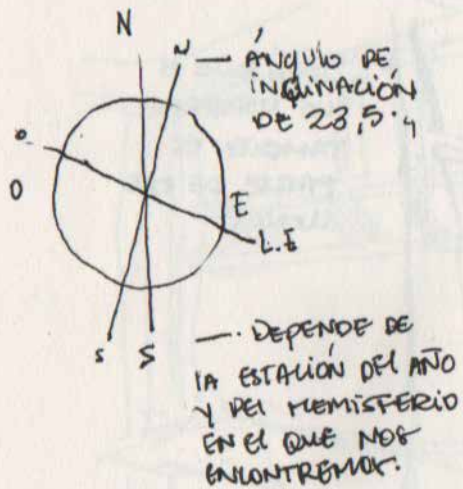 N
N — ÁNGULO DE
INCLINACIÓN
DE 23,5°
O
O
E
L.E
S
S
— DEPENDE DE
LA ESTACIÓN DEL AÑO
Y DEL HEMISFERIO
EN EL QUE NOS
ENCONTREMOS.